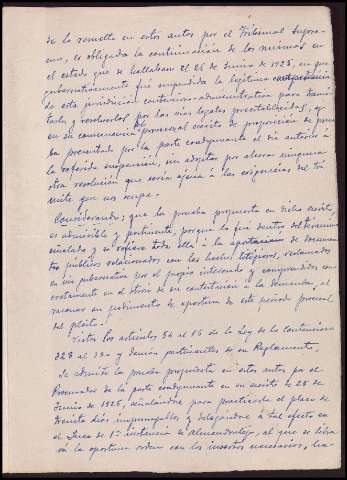 de lo resuelto en estos autos por el Tribunal Supre-
mo, es obligada la continuación de los mismos en
el estado que se hallaban el 26 de Junio de 1925, en que
gubernativamente fué suspendida la legítima competencia
de esta jurisdicción contencioso-administrativa para trami-
tarlo y resolverlo por las vías legales preestablecidas, y
en su consecuencia procesal escrito de proposición de prue-
ba presentado por la parte coadyuvante el día anterior a
la referida suspensión, sin adoptar por ahora ninguna
otra resolución que sería ajena á las exigencias del trá-
mite que nos ocupa.
Considerando: que la prueba propuesta en dicho escrito,
es admisible y pertinente, porque lo fué dentro del término
señalado y se refiere toda ella á la aportación de documen-
tos públicos relacionados con los hechos litigiosos, reclamados
en vía gubernativa por el propio interesado y comprendidos con-
cretamente en el otrosí de su contestación a la demanda, al
razonar su pedimento de apertura de este período procesal
del pleito.
Vistos los artículos 54 al 56 de la Ley de lo Contencioso
328 al 330 y demás pertinentes de su Reglamento.
Se admite la prueba propuesta en estos autos por el
Procurador de la parte coadyuvante en su escrito de 25 de
Junio de 1925, señalándose para practicarla el plazo de
treinta días improrrogables y delegándose á tal efecto en
el Juez de 1ª instancia de Almendralejo, al que se libra-
rá la oportuna orden con los insertos necesarios, ha-